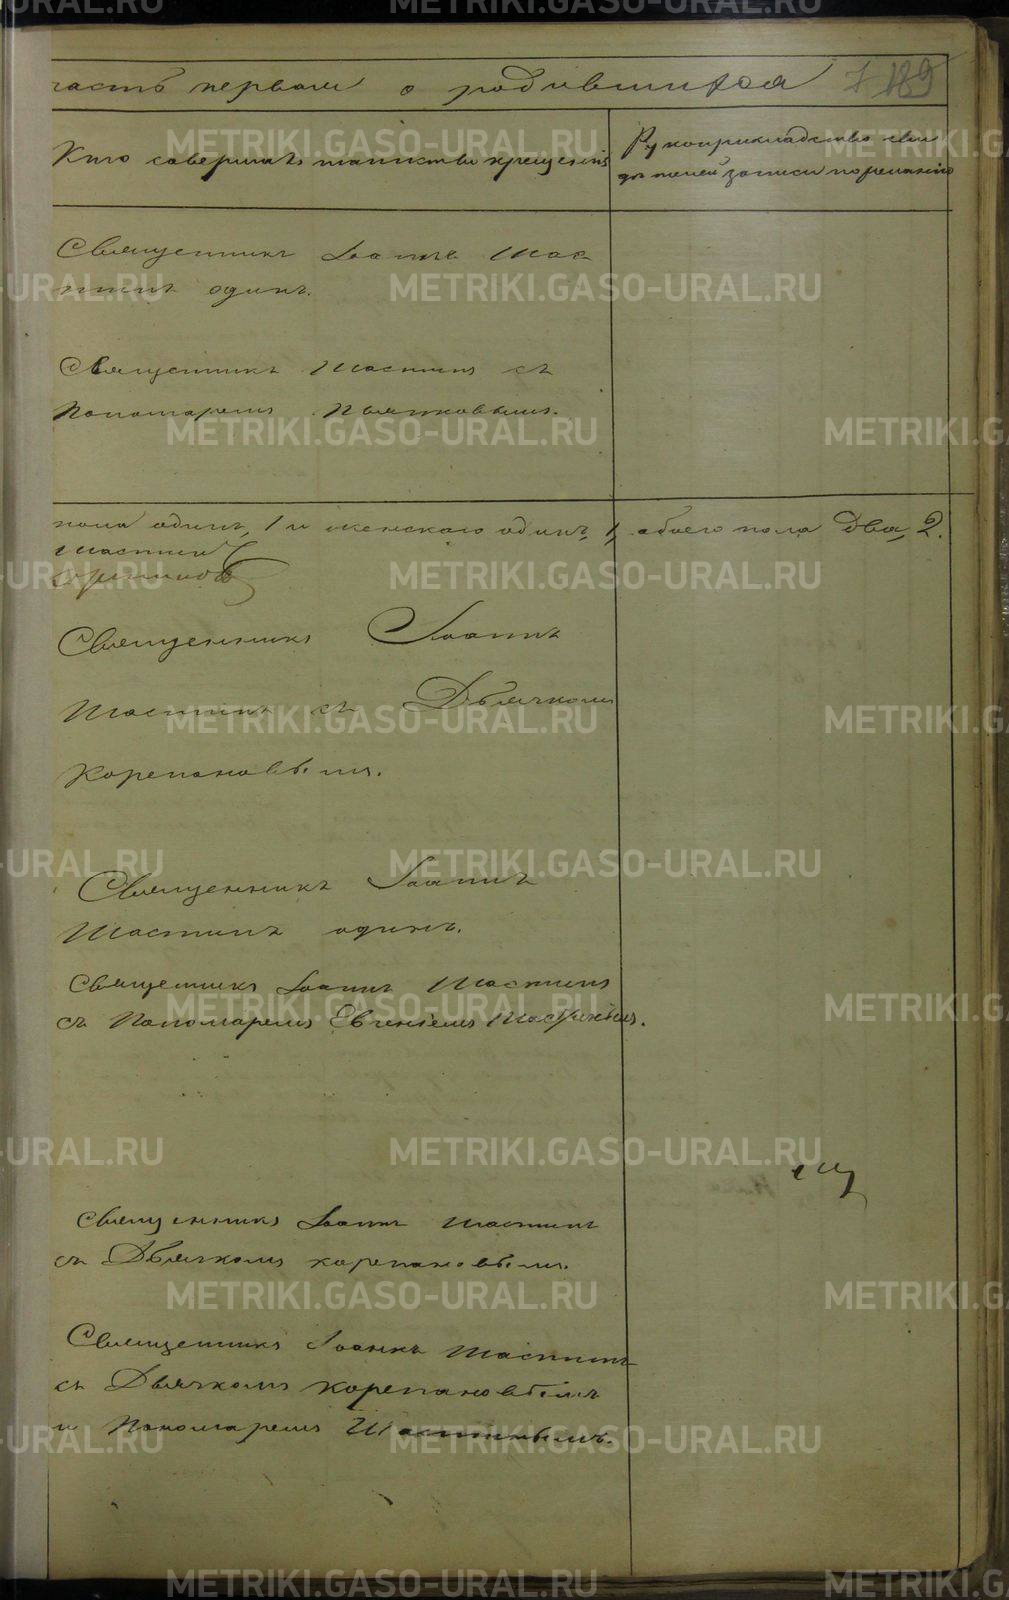 часть первая о родившихся 189
Кто совершалъ таинство крещенія
Рукоприкладство сви
дѣтелей записи по желанію
Священникъ Іоаннъ Шас
тинъ одинъ.
Священникъ Шастинъ съ
Пономаремъ
пола одинъ, 1 и женскаго одинъ, 1, обоего пола два, 2.
Шастин
Священникъ Іоаннъ
Шастинъ съ Дьячкомъ
Корепановымъ.
Священникъ Іоаннъ
Шастинъ одинъ.
Священникъ Іоаннъ Шастинъ
съ Пономаремъ Евгеніемъ Шастинымъ.
Священникъ Іоаннъ Шастинъ
съ Дьячкомъ Корепановымъ.
Священникъ Іоаннъ Шастинъ
съ Дьячкомъ Корепановымъ
и Пономаремъ Шастинымъ.
METRIKI.GASO-URAL.RU